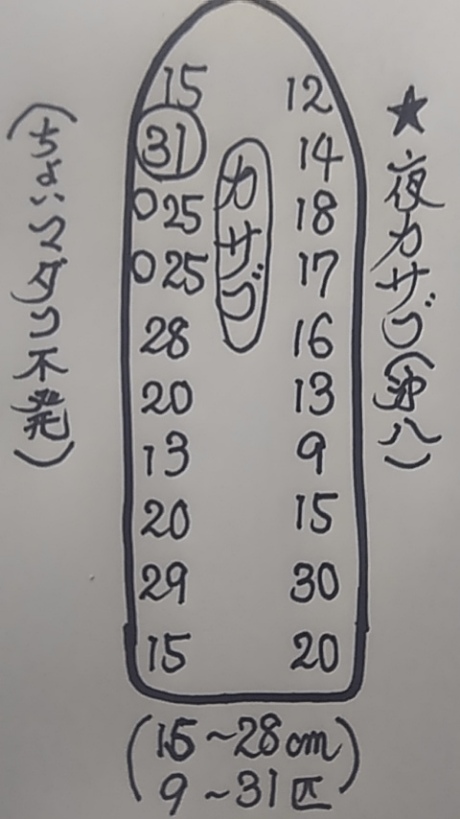 ★夜カサゴ(弥八)
15 12
31 14
○25 18
○25 17
28 16
20 13
13 9
20 15
29 30
15 20
カサゴ
(ちょいマダコ不発)
(15~28cm
9~31匹)